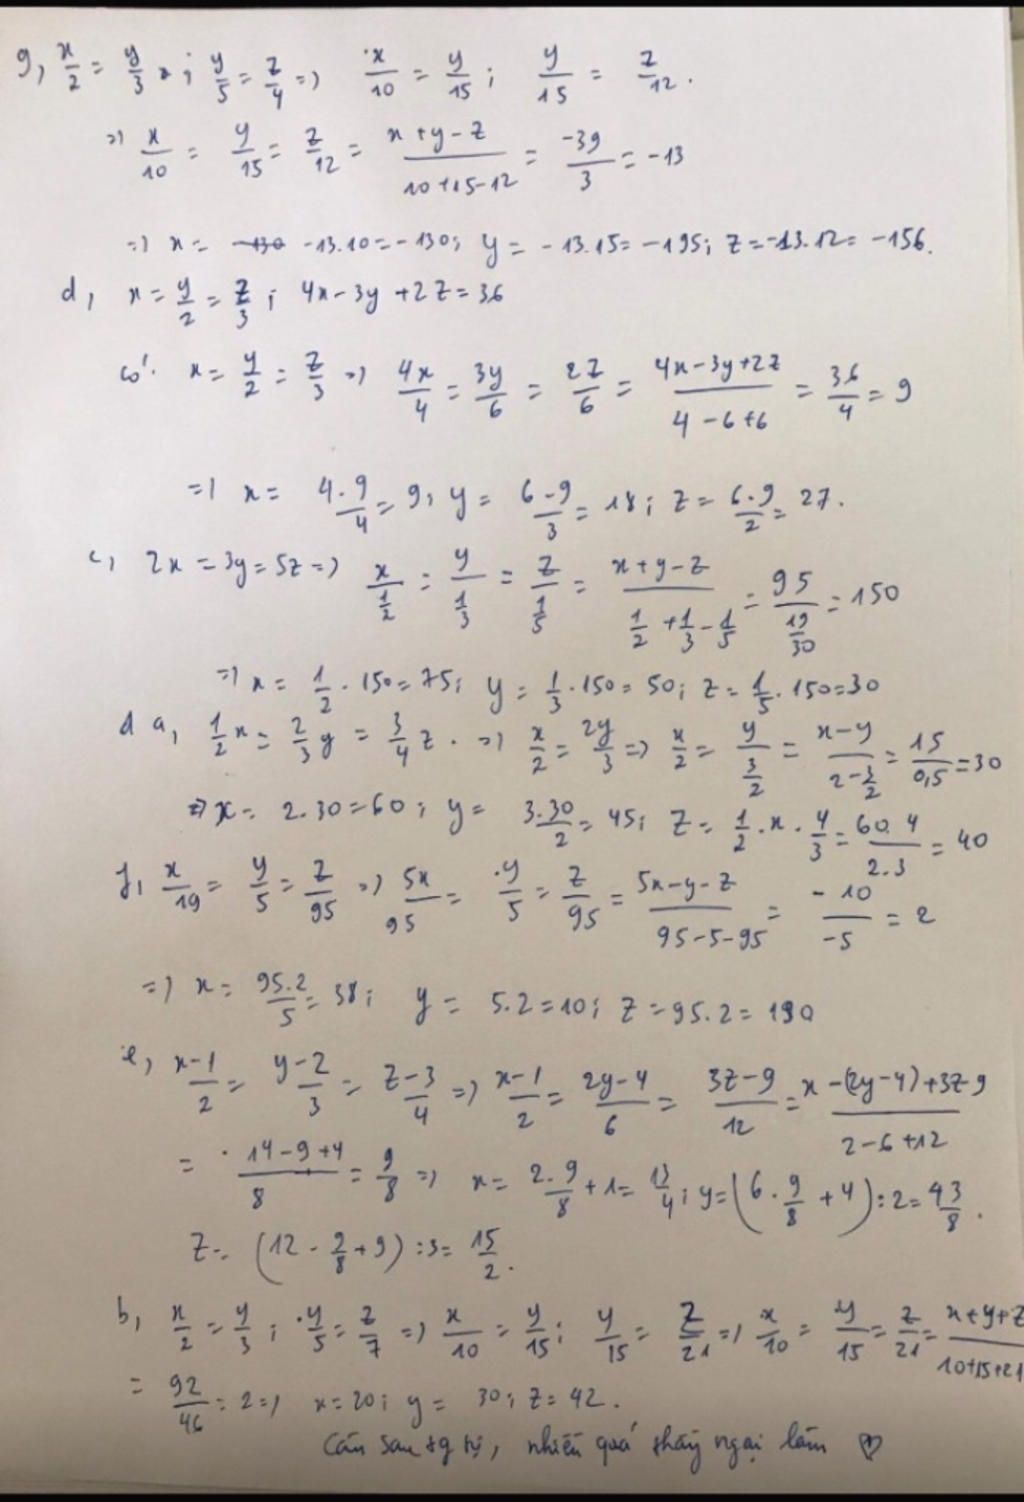 g, x/2 = y/3 ; y/5 = z/4 => x/10 = y/15 ; y/15 = z/12.
=> x/10 = y/15 = z/12 = (x+y-z)/(10+15-12) = -39/3 = -13
=> x = -13.10 = -130; y = -13.15 = -195; z = -13.12 = -156.
d, x = y/2 = z/3 ; 4x - 3y + 2z = 36
có. x = y/2 = z/3 => 4x/4 = 3y/6 = 2z/6 = (4x-3y+2z)/(4-6+6) = 36/4 = 9
=> x = 4.9/4 = 9, y = 6.9/3 = 18; z = 6.9/2 = 27.
c, 2x = 3y = 5z => x/(1/2) = y/(1/3) = z/(1/5) = (x+y-z)/(1/2+1/3-1/5) = 95/(19/30) = 150
=> x = 1/2 . 150 = 75; y = 1/3 . 150 = 50; z = 1/5 . 150 = 30
d a, 1/2 x = 2/3 y = 3/4 z. => x/2 = 2y/3 => x/2 = y/(3/2) = (x-y)/(2-3/2) = 15/0,5 = 30
=> x = 2.30 = 60; y = 3.30/2 = 45; z = 1/2 . x . 4/3 = 60.4/2.3 = 40
f, x/19 = y/5 = z/95 => 5x/95 = y/5 = z/95 = (5x-y-z)/(95-5-95) = -10/-5 = 2
=> x = 95.2/5 = 38; y = 5.2 = 10; z = 95.2 = 190
e, (x-1)/2 = (y-2)/3 = (z-3)/4 => (x-1)/2 = (2y-4)/6 = (3z-9)/12 = (x-(2y-4)+3z-9)/(2-6+12)
= (14-9+4)/8 = 9/8 => x = 2.9/8 + 1 = 13/4; y = (6.9/8 + 4):2 = 43/8.
z = (12 - 9/8 + 9):3 = 15/2.
b, x/2 = y/3 ; y/5 = z/7 => x/10 = y/15; y/15 = z/21 => x/10 = y/15 = z/21 = (x+y+z)/(10+15+21)
= 92/46 = 2 => x = 20; y = 30; z = 42.
Câu sau tg tự, nhiều quá thấy ngại làm ♡